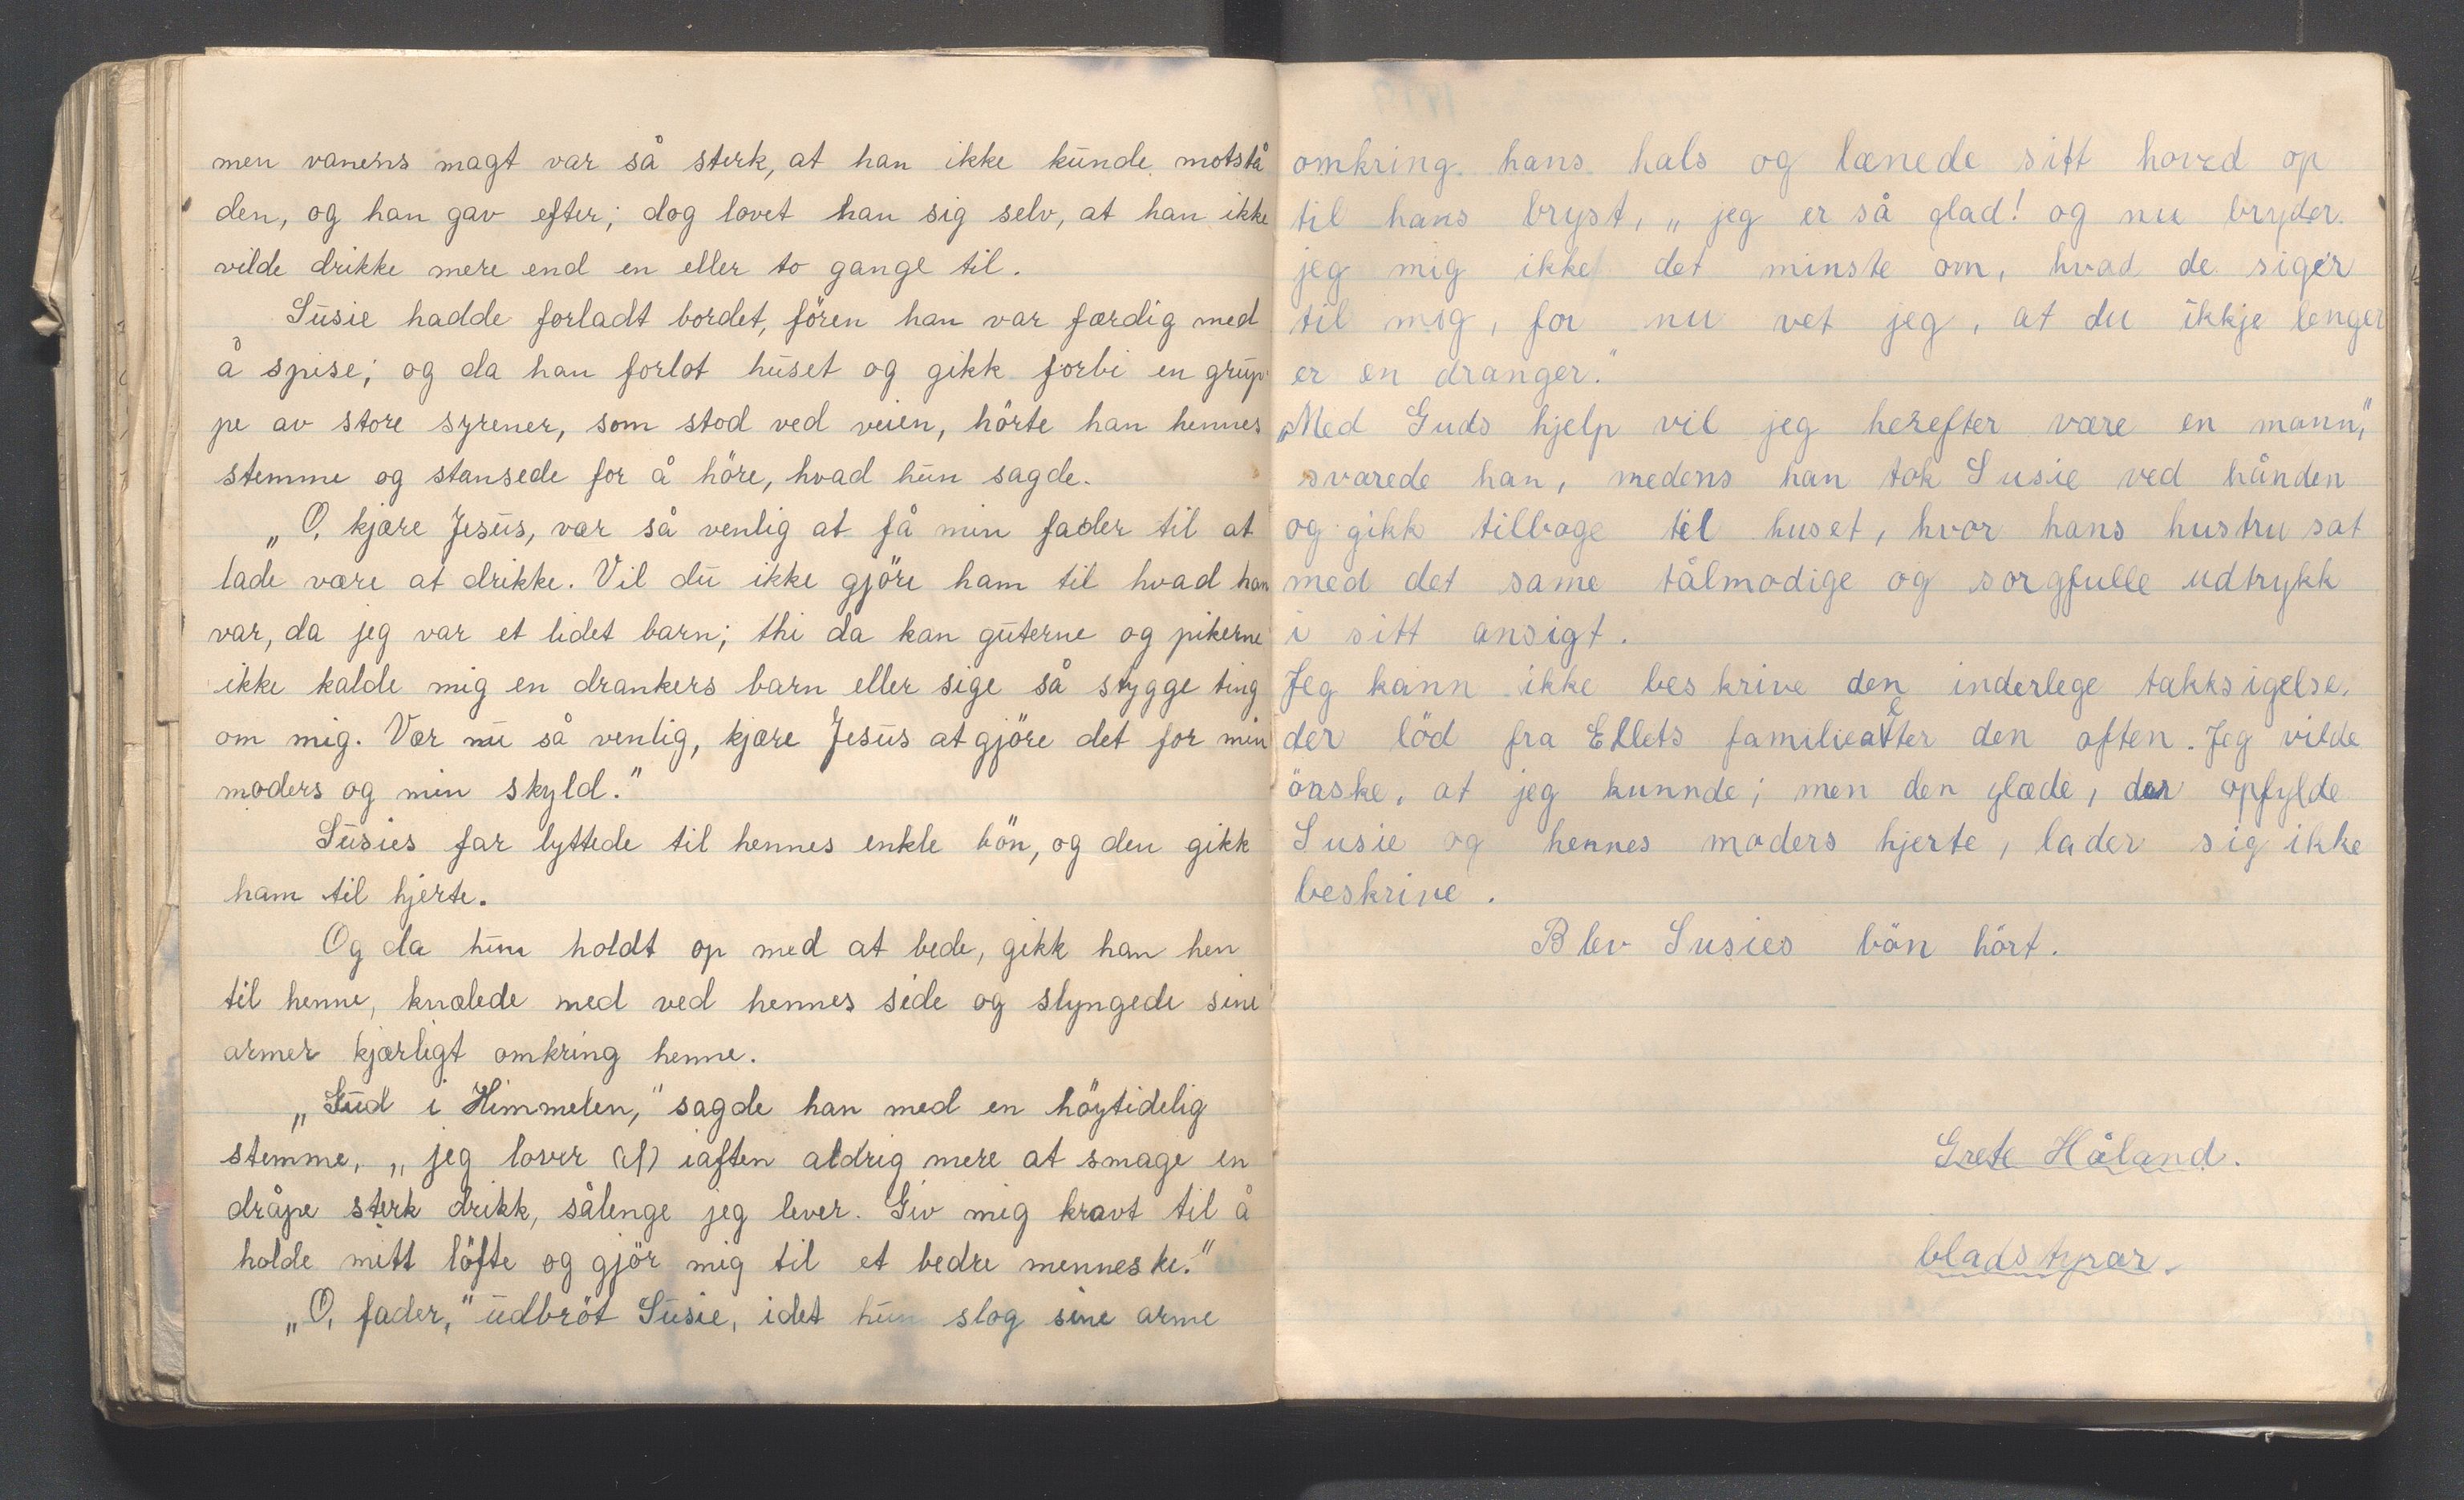 men vanens magt var så sterk, at han ikke kunde motstå
den, og han gav efter; dog lovet han sig selv, at han ikke
vilde drikke mere end en eller to gange til.
Susie hadde forladt bordet, fören han var færdig med
å spise; og da han forlot huset og gikk forbi en grup-
pe av store syrener, som stod ved veien, hörte han hennes
stemme og stansede for å höre, hvad hun sagde.
„O, kjære Jesus, vær så venlig at få min fader til at
lade være at drikke. Vil du ikke gjöre ham til hvad han
var, da jeg var et lidet barn; thi da kan guterne og pikerne
ikke kalde mig en drankers barn eller sige så stygge ting
om mig. Vær nu så venlig, kjære Jesus at gjöre det for min
moders og min skyld."
Susies far lyttede til hennes enkle bön, og den gikk
ham til hjerte.
Og da hun holdt op med at bede, gikk han hen
til henne, knælede med ved hennes side og slyngede sine
armer kjærligt omkring henne.
„Gud i Himmelen," sagde han med en höytidelig
stemme, „jeg lover iaften aldrig mere at smage en
dråpe sterk drikk, sålenge jeg lever. Giv mig kravt til å
holde mitt löfte og gjör mig til et bedre menneske."
„O, fader," udbröt Susie, idet hun slog sine arme
omkring hans hals og lænede sitt hoved op
til hans bryst, „jeg er så glad! og nu bryder
jeg mig ikke det minste om, hvad de siger
til mig, for nu vet jeg, at du ikkje lenger
er en dranger."
„Med Guds hjelp vil jeg herefter være en mann",
svarede han, medens han tok Susie ved hånden
og gikk tilbage til huset, hvor hans hustru sat
med det same tålmodige og sorgfulle udtrykk
i sitt ansigt.
Jeg kann ikke beskrive den inderlege takksigelse,
der löd fra Ellets familieatter den aften. Jeg vilde
önske, at jeg kunnde; men den glæde, der opfylde
Susie og hennes moders hjerte, lader sig ikke
beskrive.
Blev Susies bön hört.
Grete Håland.
bladstyrar.